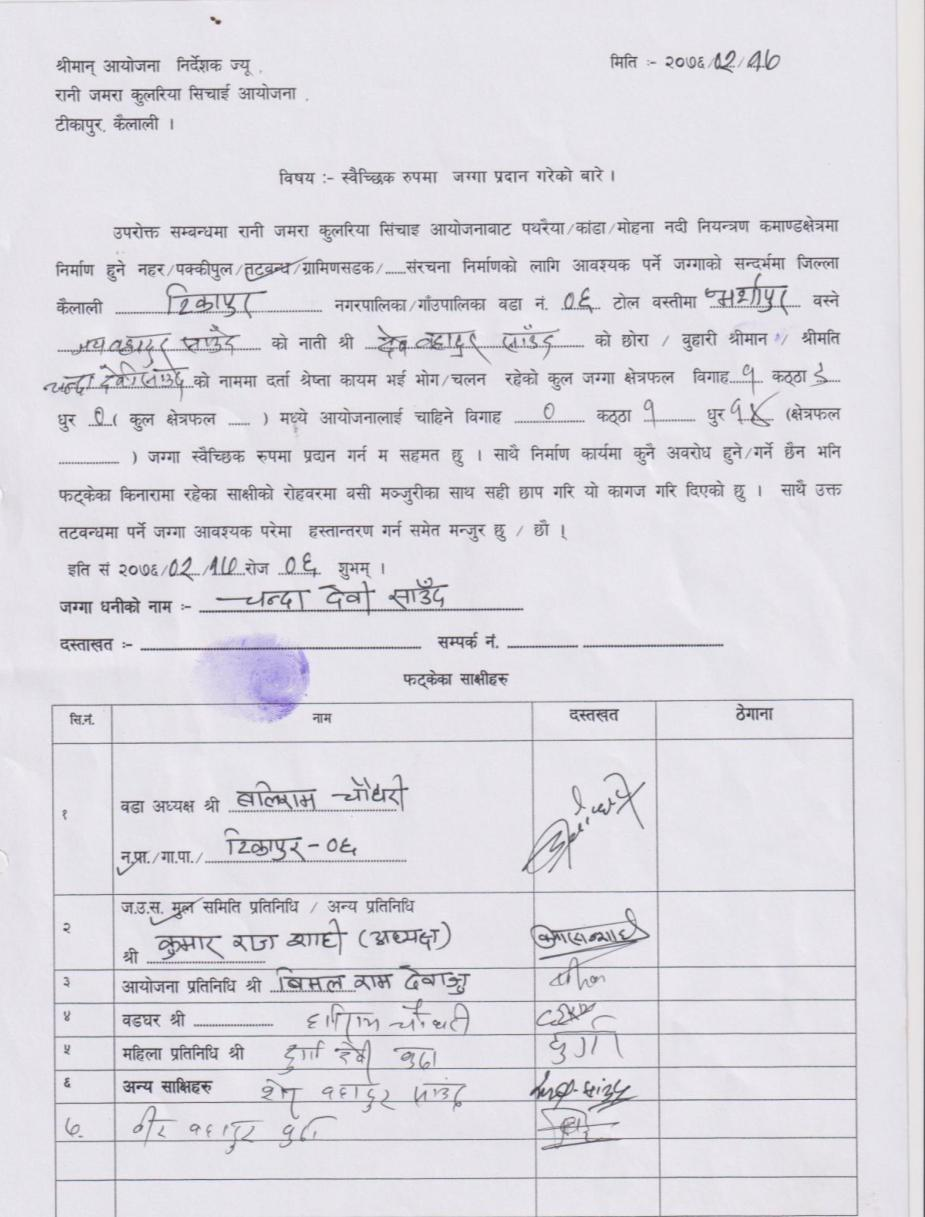 श्रीमान् आयोजना निर्देशक ज्यू ,
मिति :- २०७६/०२/१७
रानी जमरा कुलरिया सिचाई आयोजना ,
टीकापुर, कैलाली ।
विषय :- स्वैच्छिक रुपमा जग्गा प्रदान गरेको बारे ।
उपरोक्त सम्बन्धमा रानी जमरा कुलरिया सिंचाइ आयोजनावाट पथरैया/कांडा/मोहना नदी नियन्त्रण कमाण्डक्षेत्रमा
निर्माण हुने नहर/पक्कीपुल/तटवन्ध/ग्रामिणसडक/......संरचना निर्माणको लागि आवश्यक पर्ने जग्गाको सन्दर्भमा जिल्ला
कैलाली टिकापुर नगरपालिका/गाँउपालिका वडा नं. ०६ टोल वस्तीमा वस्ने
जय वहादुर साउँद को नाती श्री देव वहादुर साउँद को छोरा / वुहारी श्रीमान / श्रीमति
चन्दा देवी साउँद को नाममा दर्ता श्रेष्ता कायम भई भोग/चलन रहेको कुल जग्गा क्षेत्रफल विगाह १ कठ्ठा
धुर ० ( कुल क्षेत्रफल ...... ) मध्ये आयोजनालाई चाहिने विगाह ० कठ्ठा १ धुर (क्षेत्रफल
................ ) जग्गा स्वैच्छिक रुपमा प्रदान गर्न म सहमत छु । साथै निर्माण कार्यमा कुनै अवरोध हुने/गर्ने छैन भनि
फट्केका किनारामा रहेका साक्षीको रोहवरमा वसी मञ्जुरीका साथ सही छाप गरि यो कागज गरि दिएको छु । साथै उक्त
तटवन्धमा पर्ने जग्गा आवश्यक परेमा हस्तान्तरण गर्न समेत मन्जुर छु / छौ ।
इति सं २०७६/०२/१७ रोज ०६ शुभम् ।
जग्गा धनीको नाम :- चन्दा देवी साउँद
दस्ताखत :- सम्पर्क नं.
फट्केका साक्षीहरु
सि.नं. नाम दस्तखत ठेगाना
१ वडा अध्यक्ष श्री बलिराम चौधरी
न.पा./गा.पा./ टिकापुर - ०६
२ ज.उ.स. मुल समिति प्रतिनिधि / अन्य प्रतिनिधि
श्री कुमार राज शाही (अध्यक्ष)
३ आयोजना प्रतिनिधि श्री बिमल राम देवाजु
४ वडघर श्री चौधरी
५ महिला प्रतिनिधि श्री दुर्गा देवी बुढा दुर्गा
६ अन्य साक्षिहरु वहादुर साउँद
७. वीर वहादुर बुढा